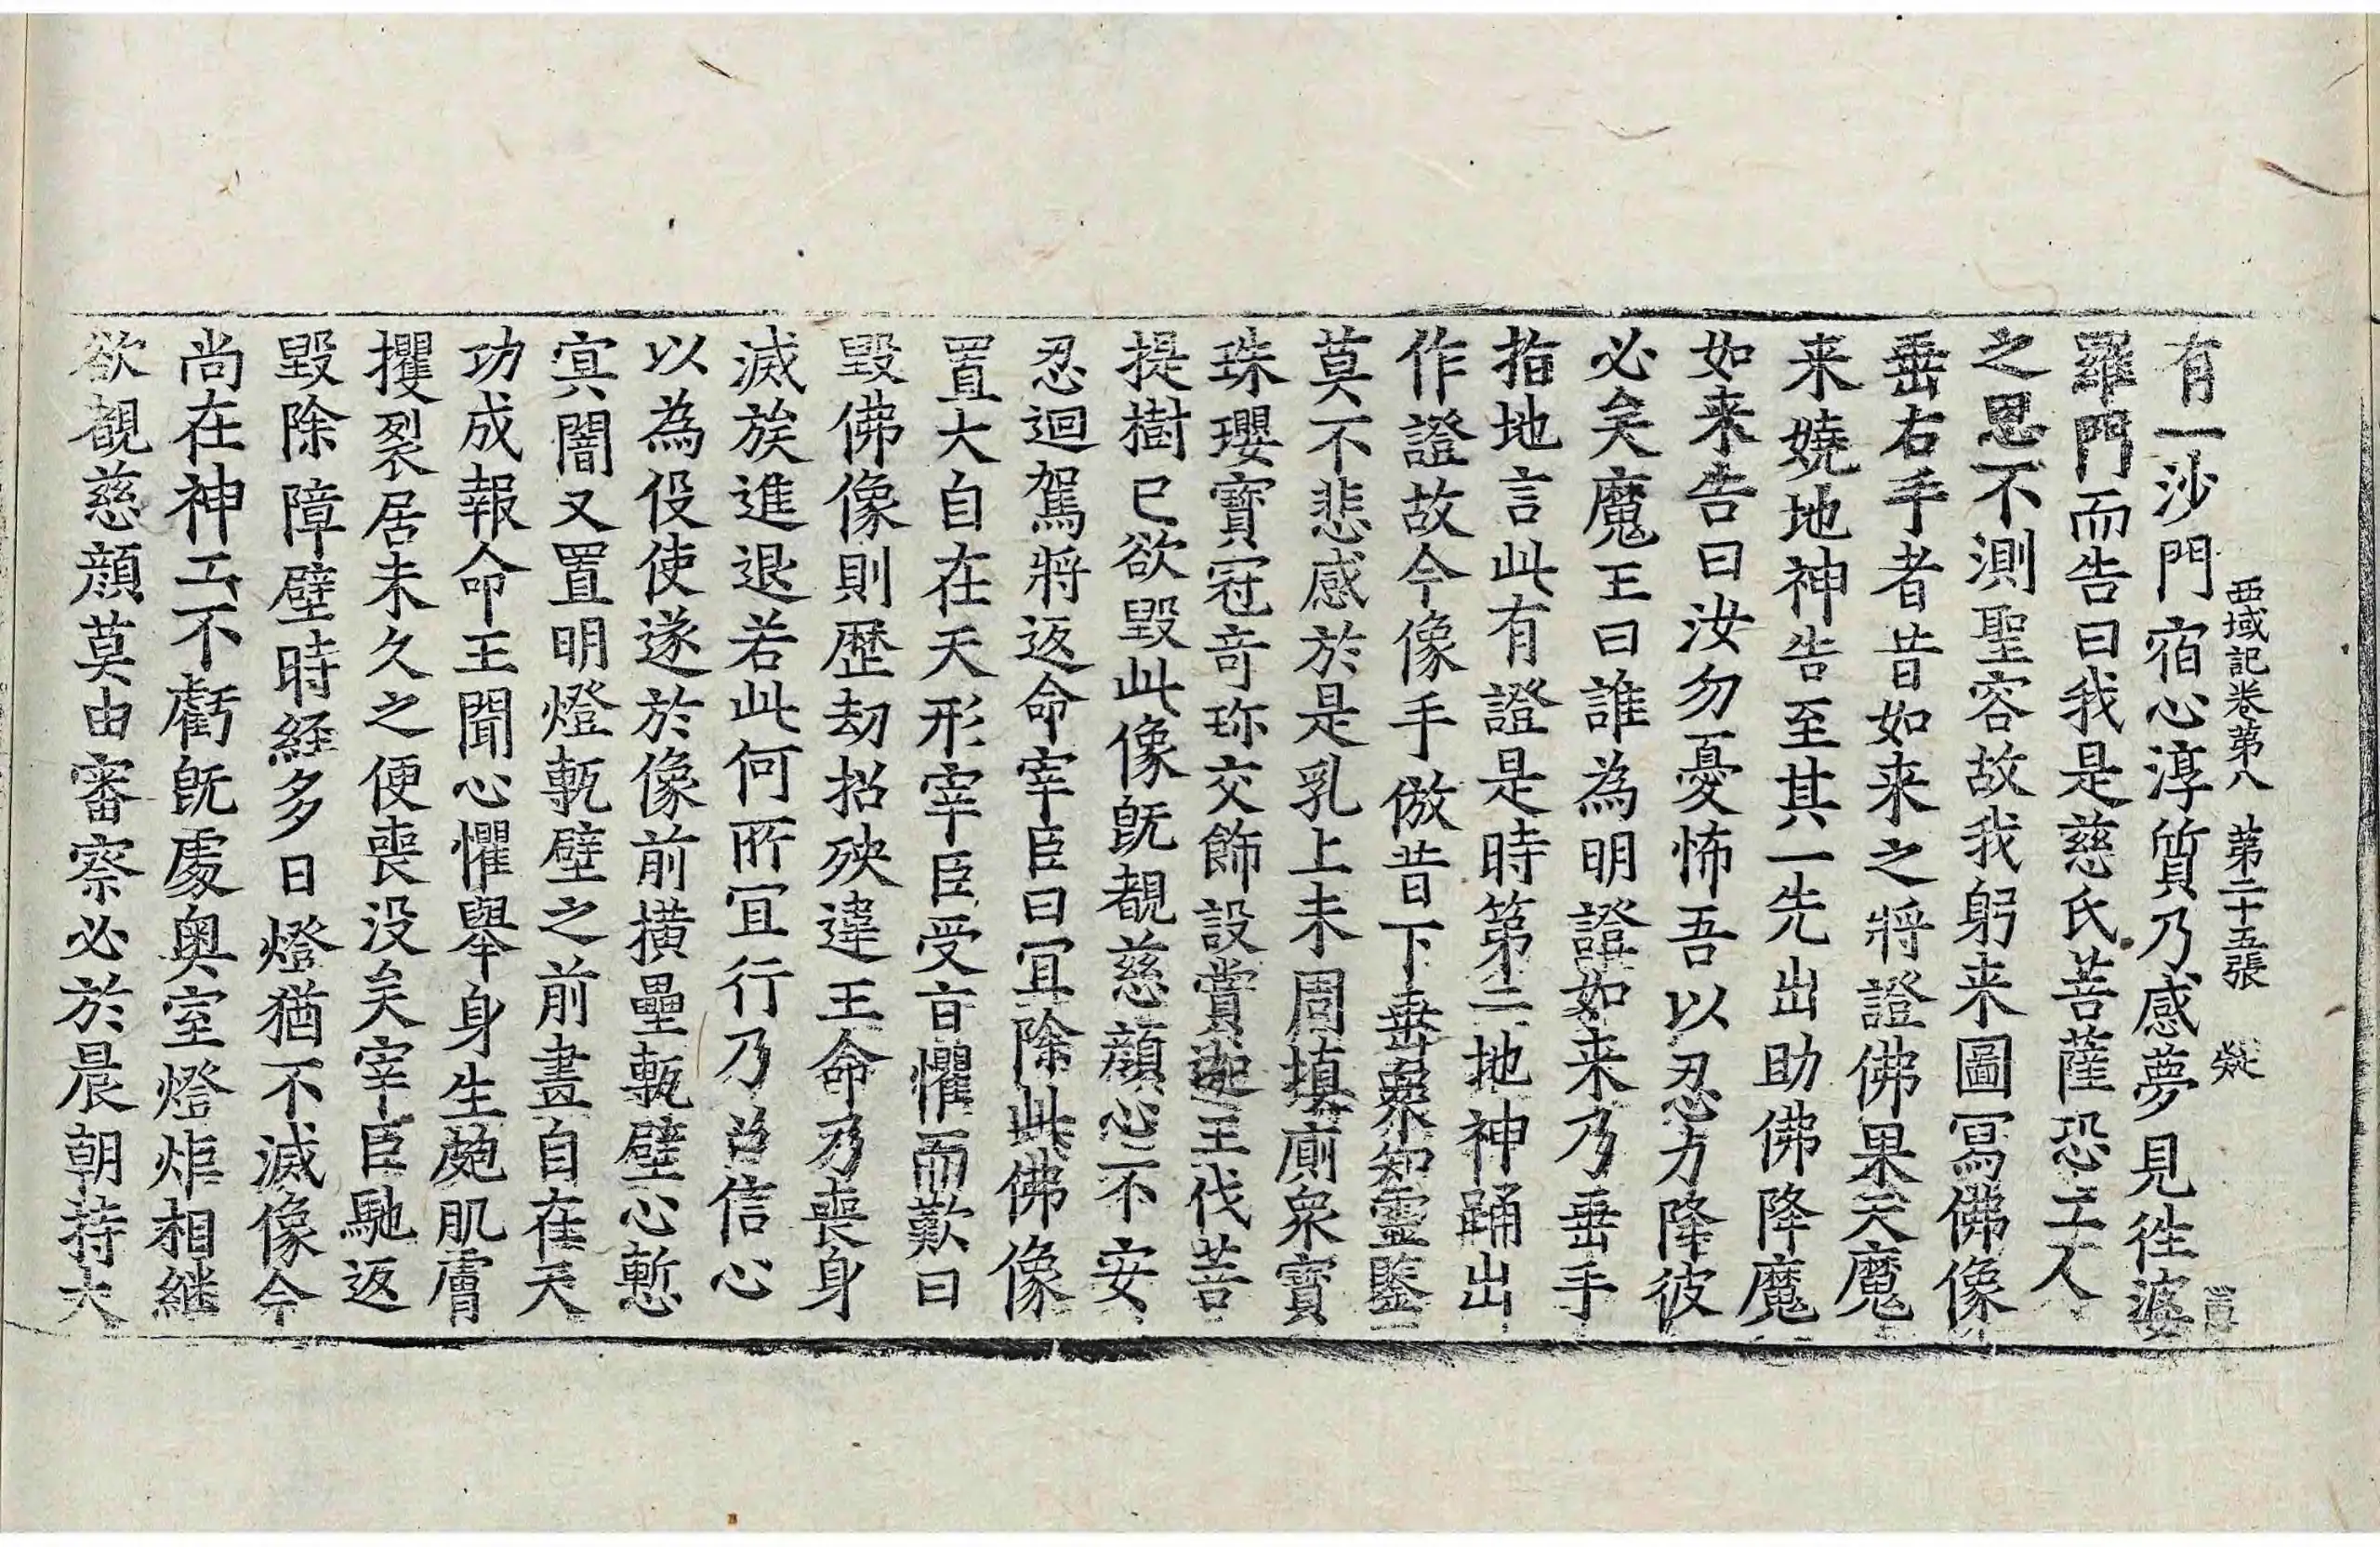 西域記卷第八 第二十五張
有一沙門宿心淳質乃感夢見往婆
羅門而告曰我是慈氏菩薩恐工人
之思不測聖容故我躬来圖冩佛像
垂右手者昔如来之將證佛果天魔
来嬈地神告至其一先出助佛降魔
如来告曰汝勿憂怖吾以忍力降彼
必矣魔王曰誰為明證如来乃垂手
指地言此有證是時第二地神踊出
作證故今像手倣昔下垂衆知靈鑒
莫不悲感於是乳上未周填廁衆寶
珠瓔寶冠奇珎交飾設賞迦王伐菩
提樹已欲毀此像旣覩慈顔心不安
忍迴駕將返命宰臣曰冝除此佛像
置大自在天形宰臣受㫖懼而歎曰
毀佛像則歷劫招殃違王命乃喪身
滅族進退若此何所冝行乃召信心
以為伇使遂於像前橫壘甎壁心慙
冥闇又置明燈甎壁之前畫自在天
功成報命王聞心懼舉身生皰肌膚
攫裂居未久之便喪没矣宰臣馳返
毀除障壁時経多日燈猶不滅像今
尚在神工不虧旣處奥室燈炬相継
欲覩慈顔莫由審察必於晨朝持大